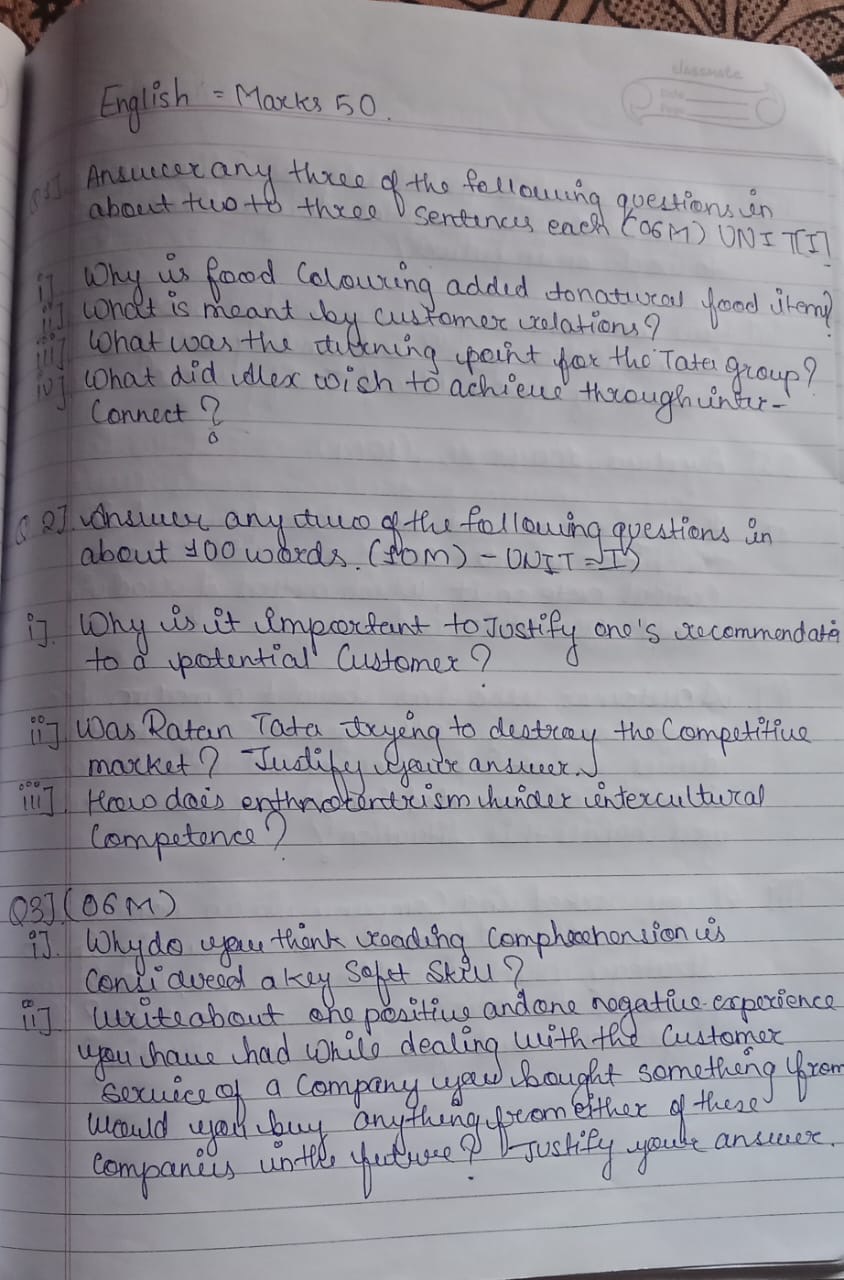 classmate
Date
Page
English = Marks 50.
Q1] Answer any three of the following questions in
about two to three sentences each (06M) UNIT I]
i] Why is food Colouring added to natural food item?
ii] What is meant by customer relations?
iii] What was the turning point for the Tata group?
iv] What did Alex wish to achieve through inter-
Connect?
Q 2]. Answer any two of the following questions in
about 100 words. (10M) - UNIT = I)
i]. Why is it important to Justify one's recommendatio
to a potential Customer?
ii] Was Ratan Tata trying to destroy the Competitive
market? Justify your answer.
iii]. How does enthnotentrism hinder intercultural
Competence?
Q3] (06M)
i]. Why do you think reading Comphrehension is
Considered a key Soft Skill?
ii] Write about one positive and one negative experience
you have had while dealing with the Customer
service of a Company you bought something from
Would you buy anything from either of these
Companies in the future? Justify your answer.